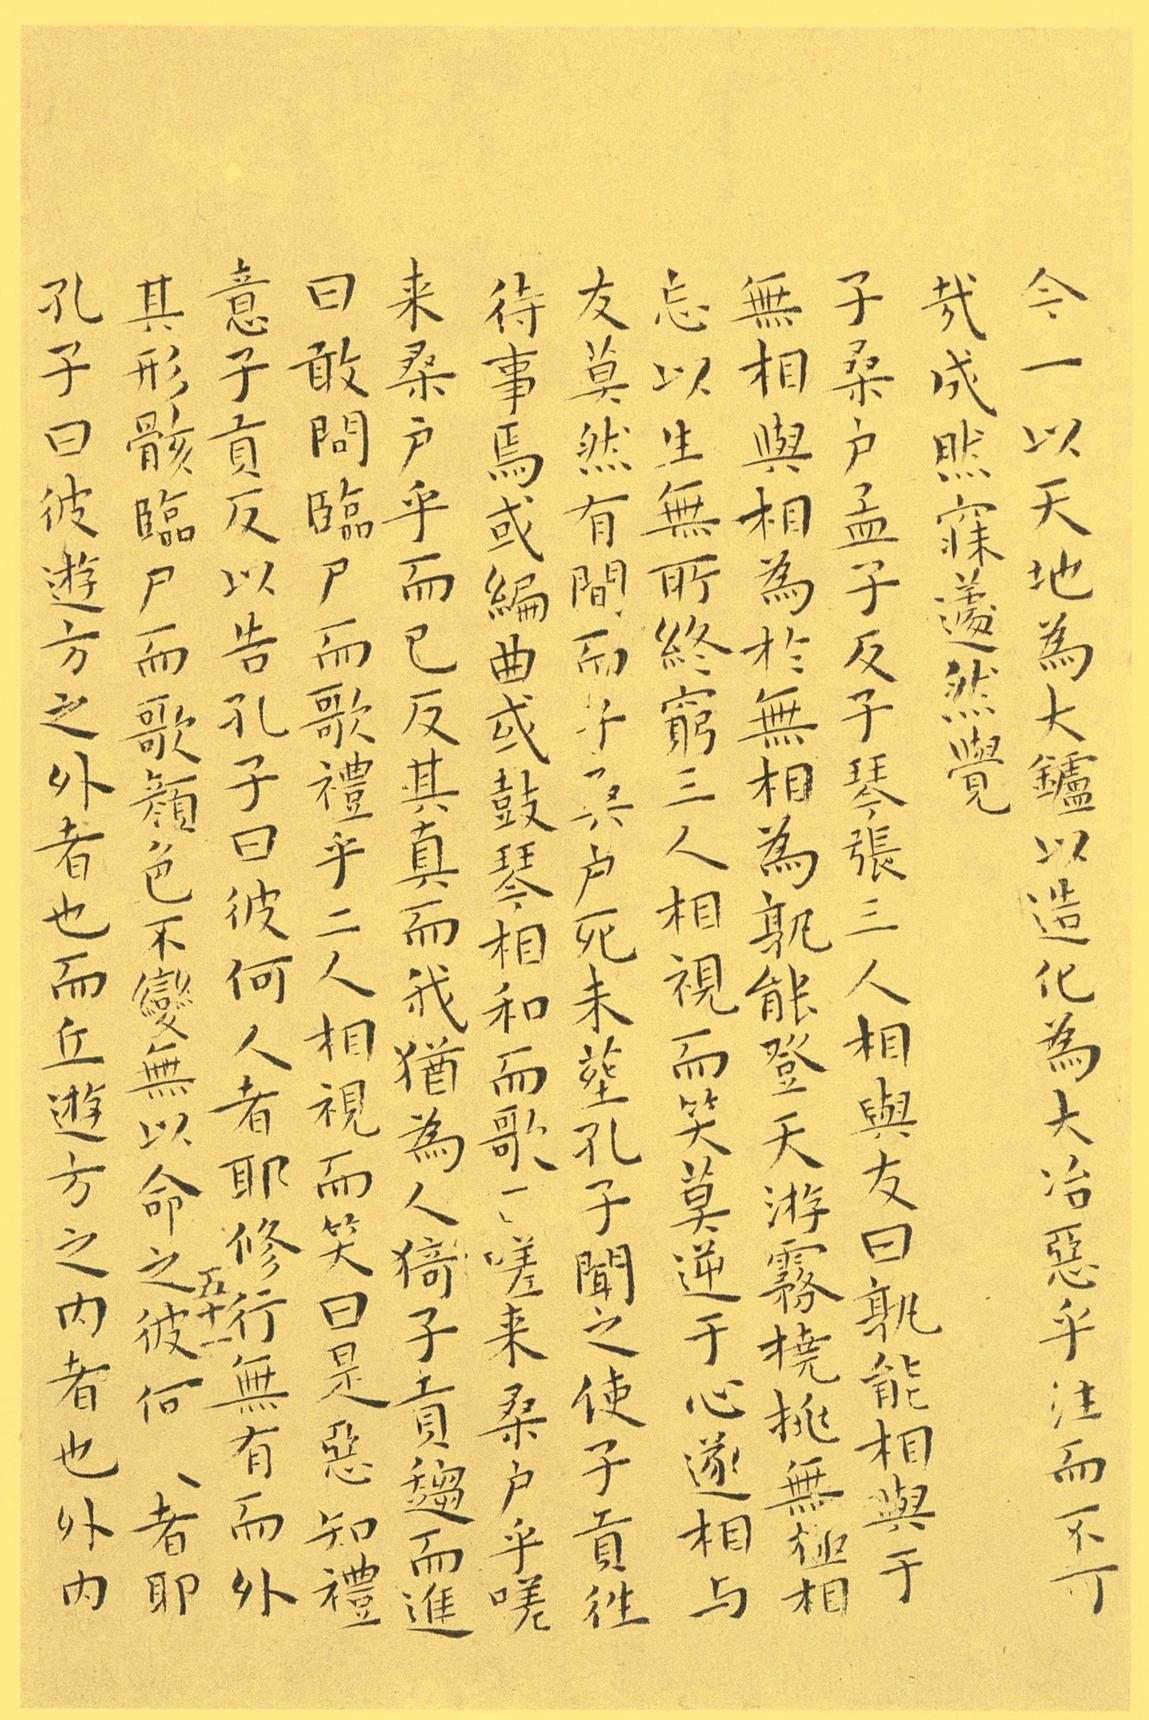 今一以天地為大鑪以造化為大冶惡乎注而不可
哉成然寐蘧然覺
子桑户孟子反子琴張三人相與友曰孰能相與于
無相與相為於無相為孰能登天游霧撓挑無極相
忘以生無所終窮三人相視而笑莫逆于心遂相与
友莫然有間而子桑户死未塟孔子聞之使子貢徃
待事焉或編曲或鼓琴相和而歌〻嗟来桑户乎嗟
来桑户乎而已反其真而我猶為人猗子貢趨而進
曰敢問臨尸而歌禮乎二人相視而笑曰是惡知禮
意子貢反以告孔子曰彼何人者耶修行無有而外
其形骸臨尸而歌顔色不變無以命之彼何〻者耶
五十一
孔子曰彼遊方之外者也而丘遊方之内者也外内